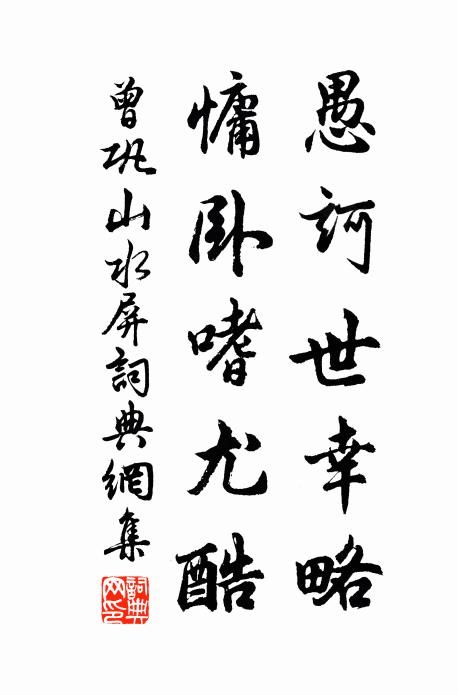 愚訶世幸略
慵卧嗜尤酷
曾巩山水屏詞典網集
詞典網印